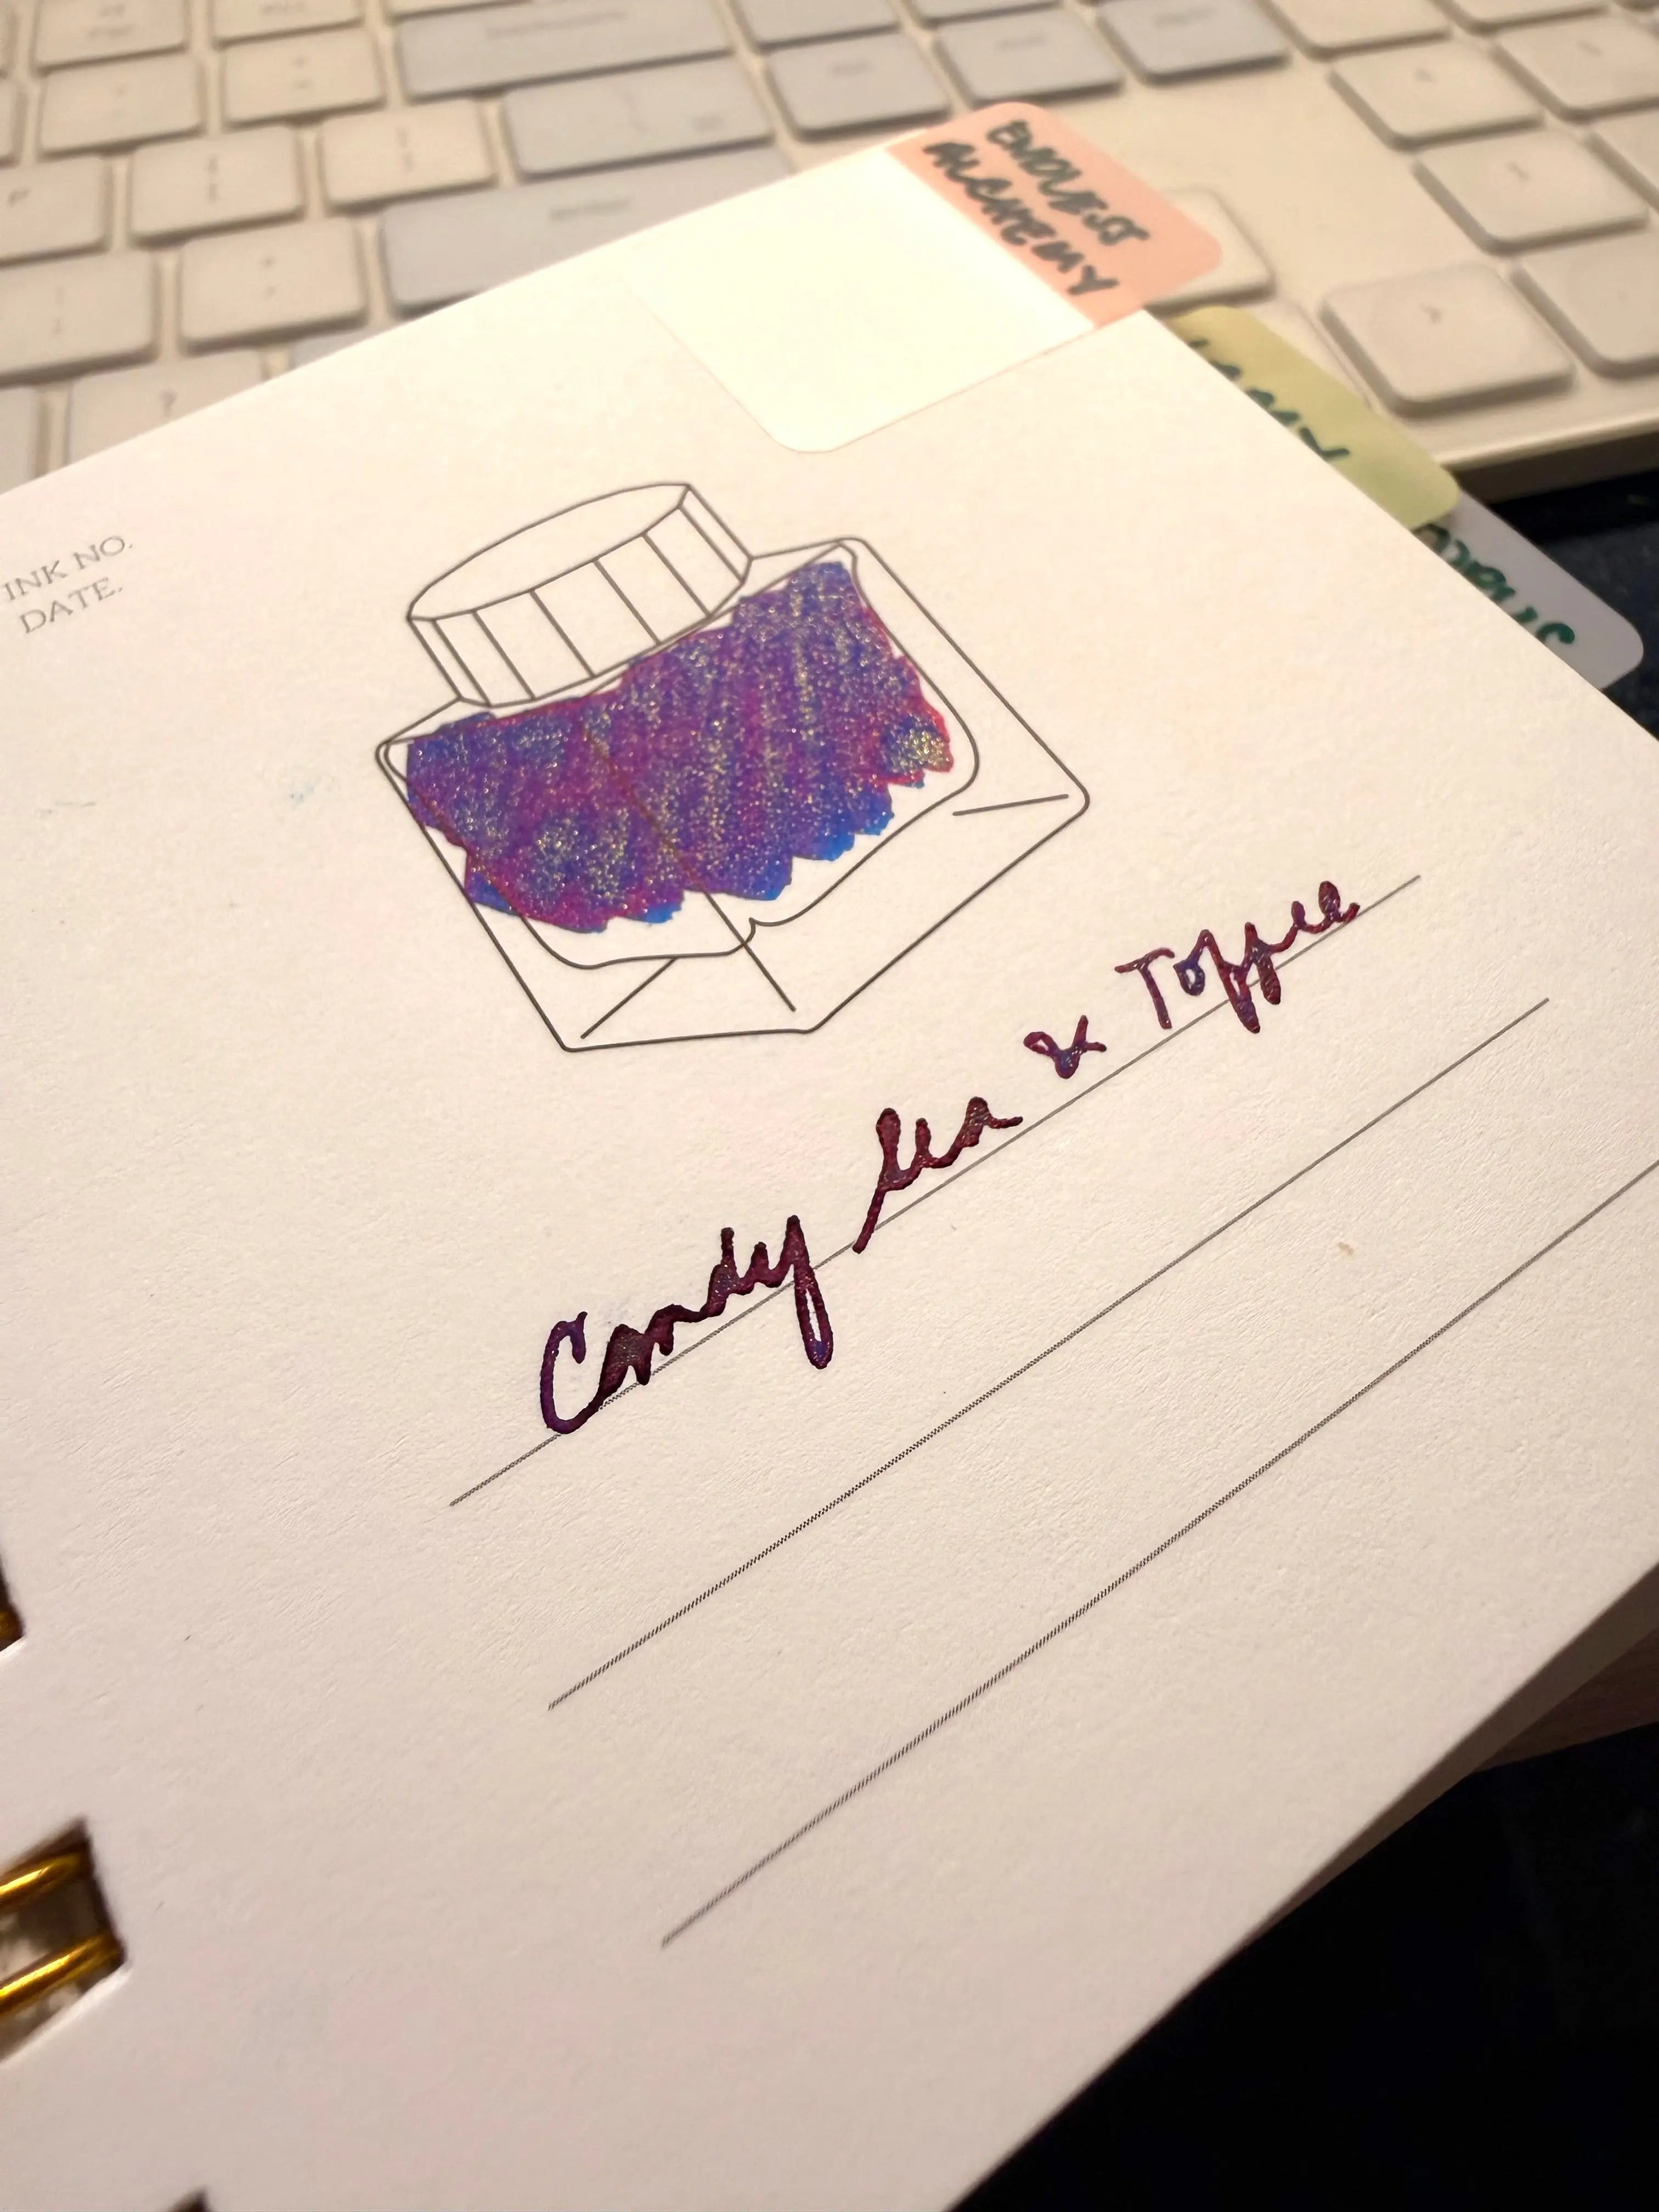 ENDLESS
ALCHEMY
INK NO.
DATE.
Candy Sea & Toffee